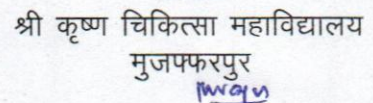 श्री कृष्ण चिकित्सा महाविद्यालय
मुजफ्फरपुर